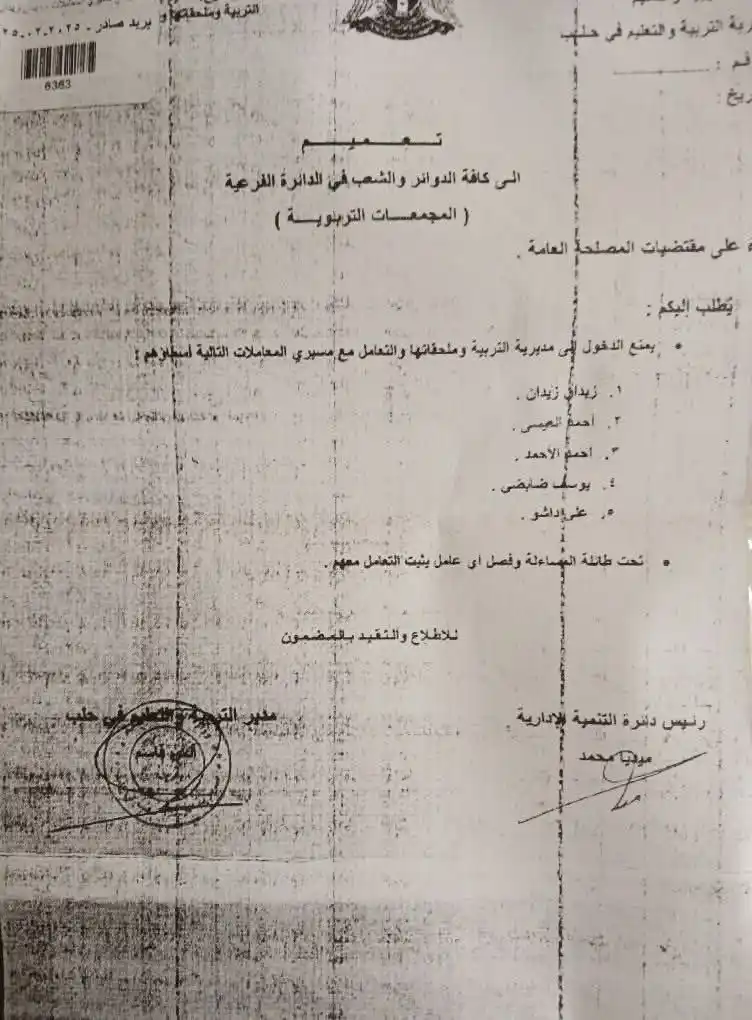 التربية وملحقاتها و
بريد صادر - ٢٠٢٥.٠٢.٢٥
6363
التربية والتعليم في حلب
تعميم
الى كافة الدوائر والشعب في الدائرة الفرعية
( المجمعات التربوية )
على مقتضيات المصلحة العامة .
يُطلب إليكم :
• يمنع الدخول إلى مديرية التربية وملحقاتها والتعامل مع مسيري المعاملات التالية أسماؤهم :
١. زيدان زيدان .
٢. أحمد العيسى .
٣. احمد الأحمد .
٤. يوسف ضابضي .
٥. علي داشو .
• تحت طائلة المساءلة وفصل أي عامل يثبت التعامل معهم .
للاطلاع والتقيد بالمضمون
رئيس دائرة التنمية الإدارية
ميديا محمد
مدير التربية والتعليم في حلب
قاسم